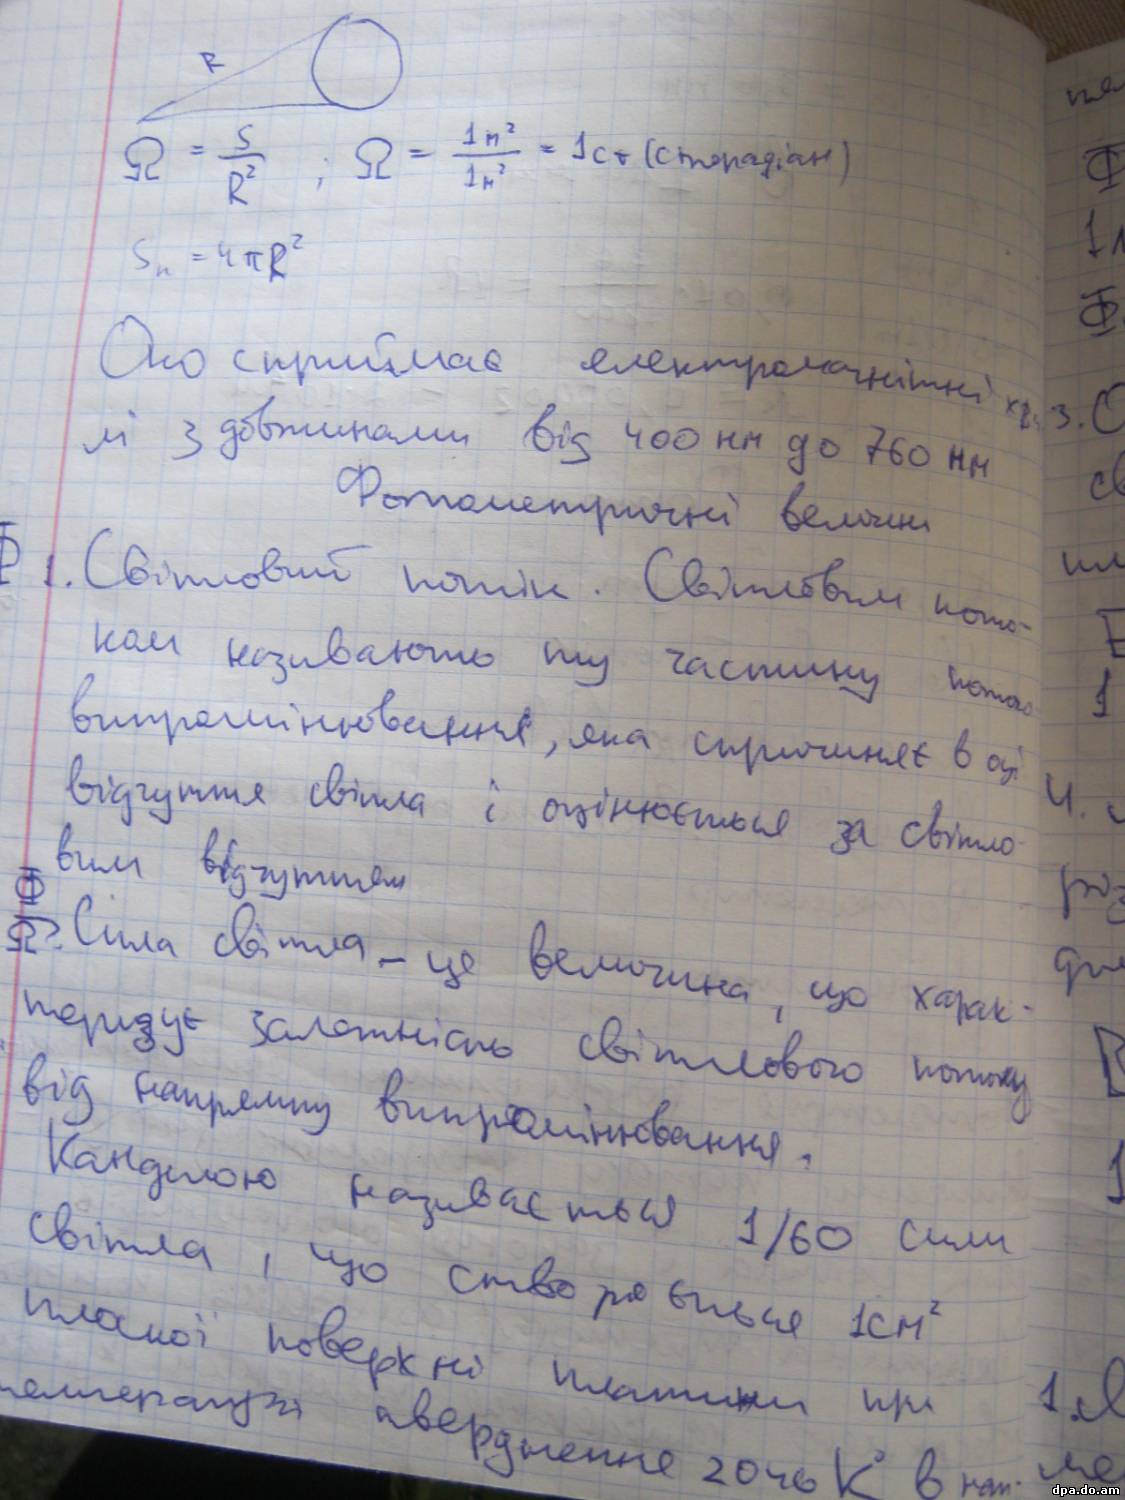 R
Ω = S/R² ; Ω = 1м²/1м² = 1ст (стерадіан)
Sп = 4πR²
Око сприймає електромагнітні хви
лі з довжинами від 400 нм до 760 нм
Фотометричні величини
Ф 1. Світловий потік. Світловим пото-
ком називають ту частину потоку
випромінювання, яка спричиняє в оці
відчуття світла і оцінюється за світло-
вим відчуттям
Ф/Ω 2. Сила світла – це величина, що харак-
теризує залежність світлового потоку
від напрямку випромінювання.
Канделою називається 1/60 сили
світла, що створюється 1см²
плоскої поверхні платини при
температурі твердження 2046 К в нап-
3. О
св
4.
роз
1
1.
dpa.do.am